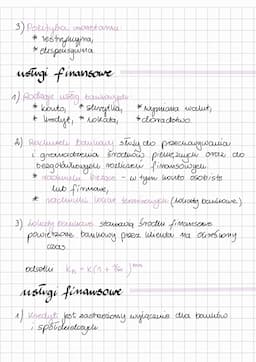 3) Polityka monetarna
* restrykcyjna,
* ekspansywna
usługi finansowe
1) Rodzaje usług bankowych
* konto, * skrytka, * wymiana walut,
* kredyt, * lokata, * doradztwo
2) Rachunki bankowy służy do przechowywania
i gromadzenia środków pieniężnych oraz do
bezgotówkowych rozliczeń finansowych.
* rachunki bieżące - w tym konto osobiste
lub firmowe,
* rachunki lokat terminowych (lokaty bankowe).
3) Lokaty bankowe stanowią środki finansowe
powierzone bankowi przez klienta na określony
czas
odsetki
usługi finansowe
1) Kredyt jest zastrzeżony wyłącznie dla banków
i spółdzielczych